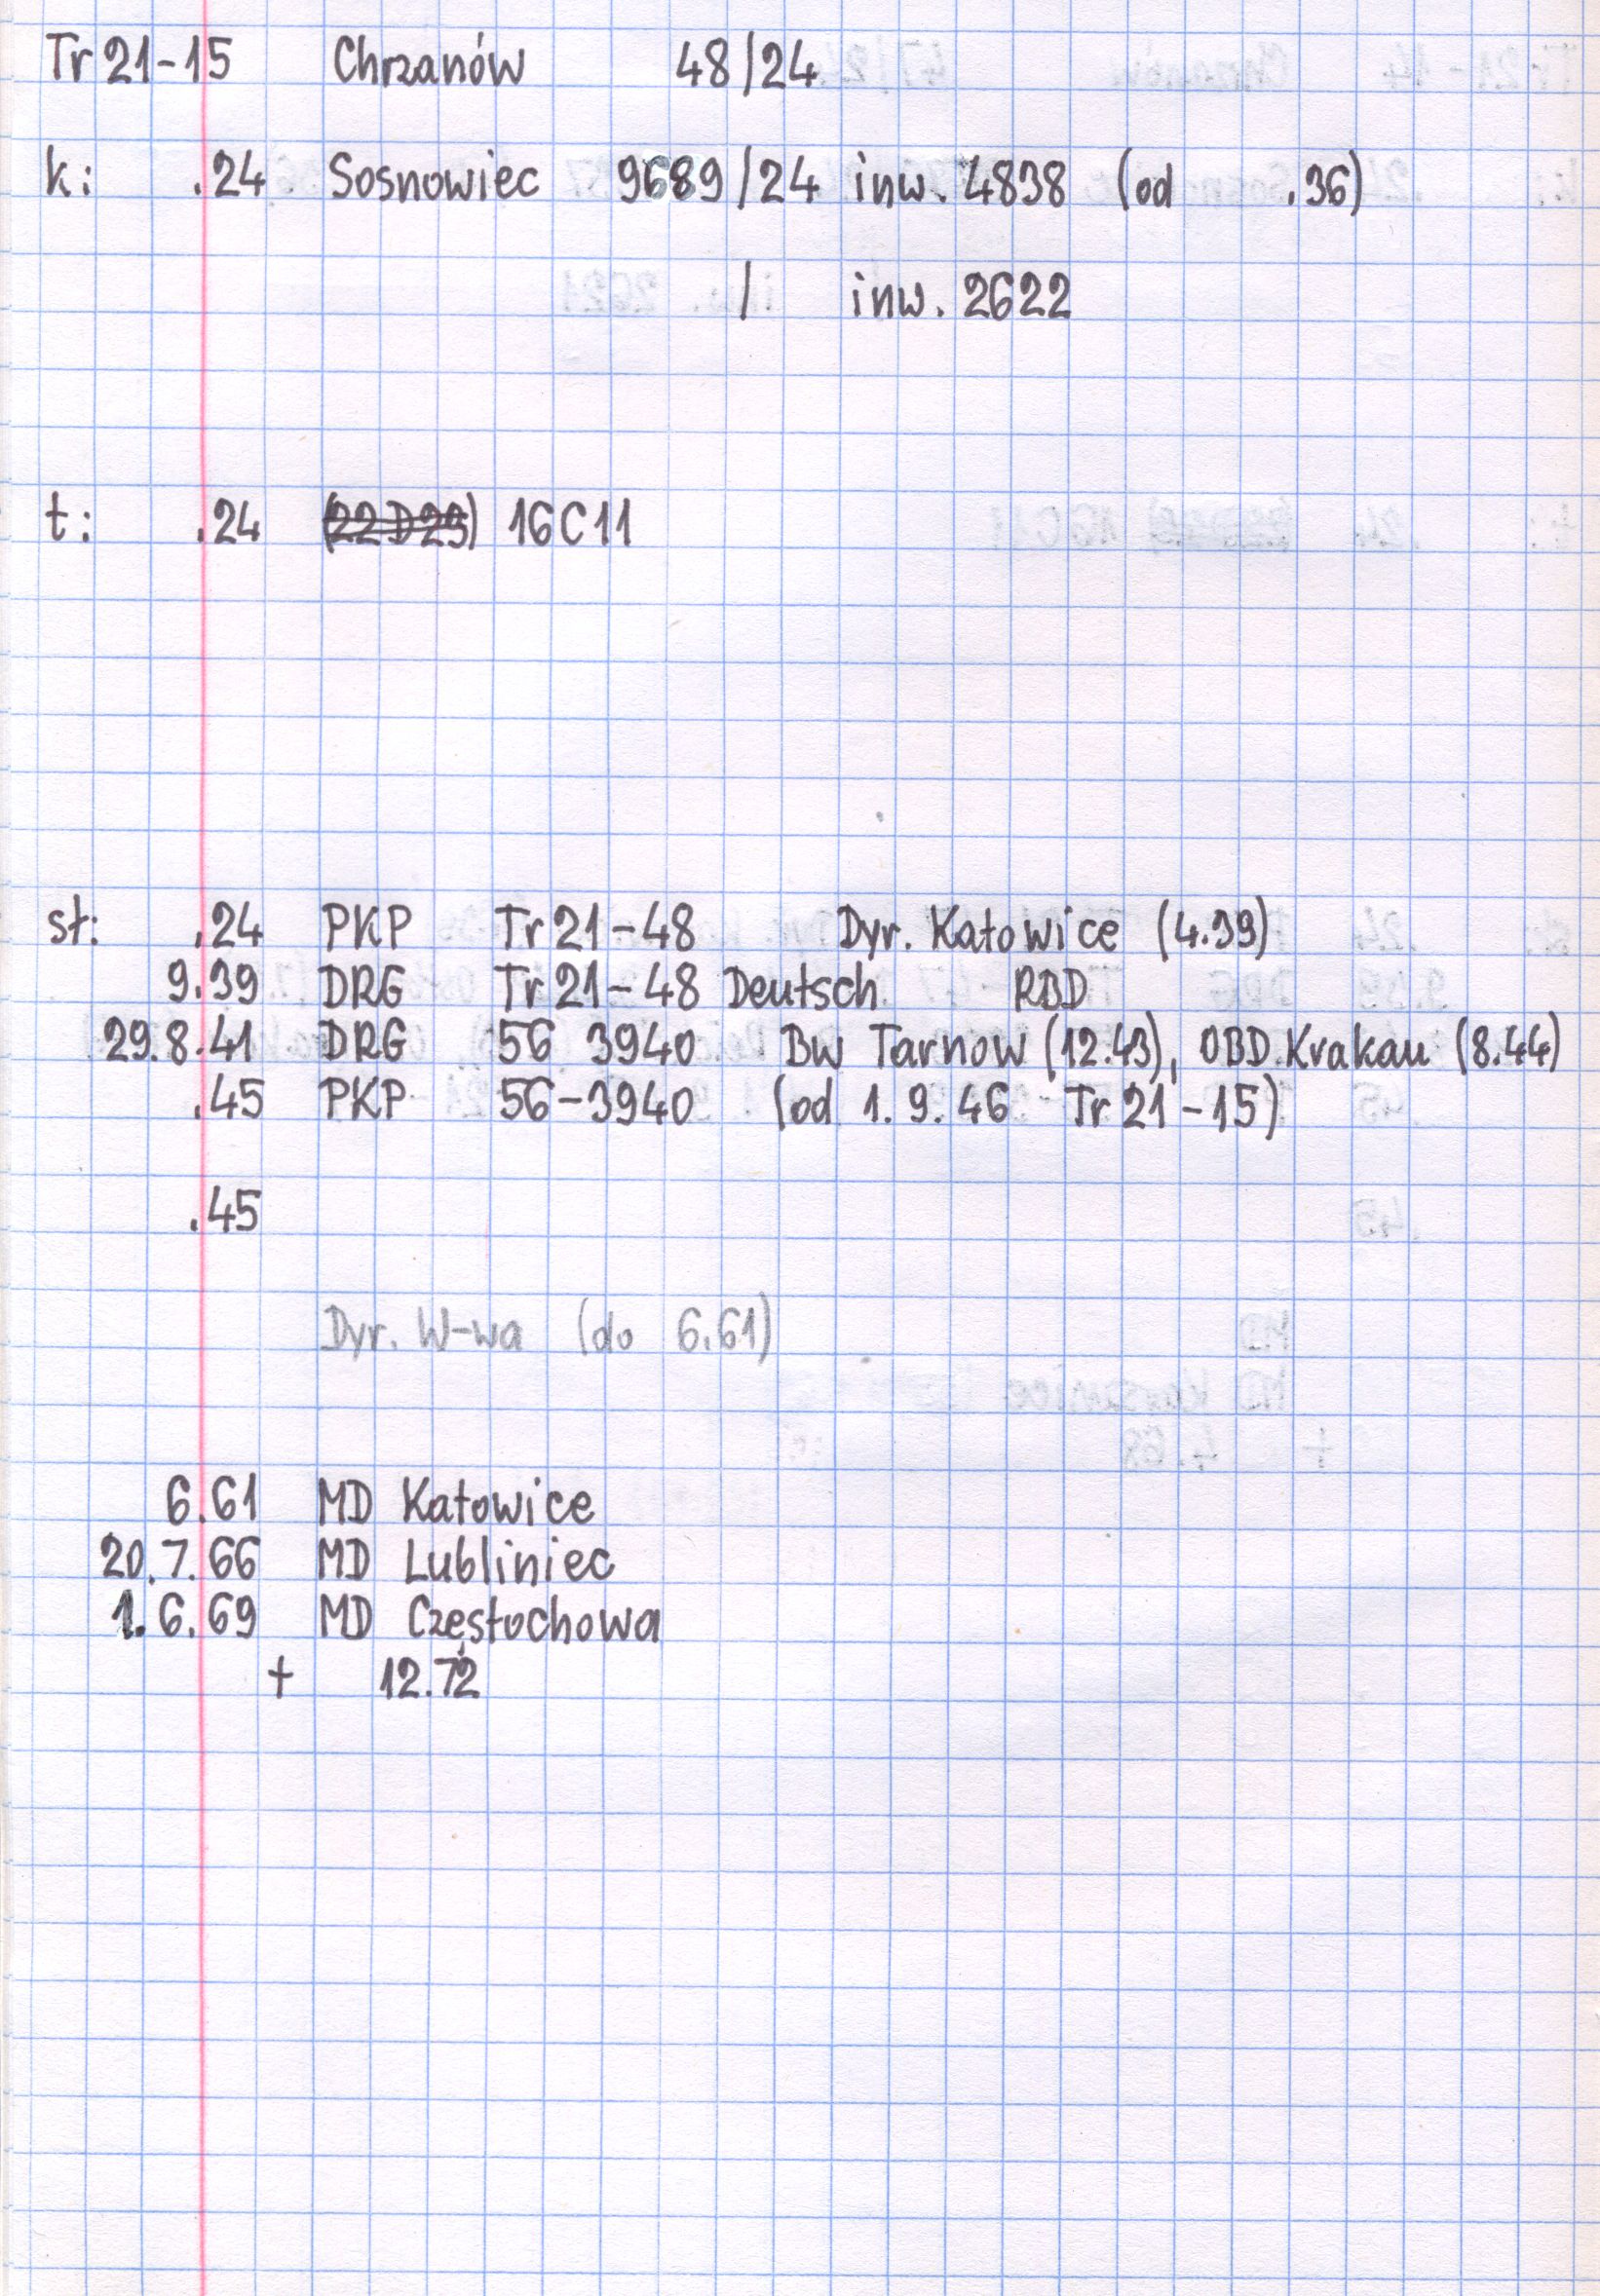 Tr 21-15 Chrzanów 48/24
k: .24 Sosnowiec 9689/24 inw. 4838 (od .36)
/ inw. 2622
t: .24 (22D23) 16C11
sł: .24 PKP Tr 21-48 Dyr. Katowice (4.39)
9.39 DRG Tr 21-48 Deutsch RBD
29.8.41 DRG 56 3940 Bw Tarnow (12.43), OBD Krakau (8.44)
.45 PKP 56-3940 (od 1.9.46 Tr 21-15)
.45
Dyr. W-wa (do 6.61)
6.61 MD Katowice
20.7.66 MD Lubliniec
1.6.69 MD Częstochowa
+ 12.72